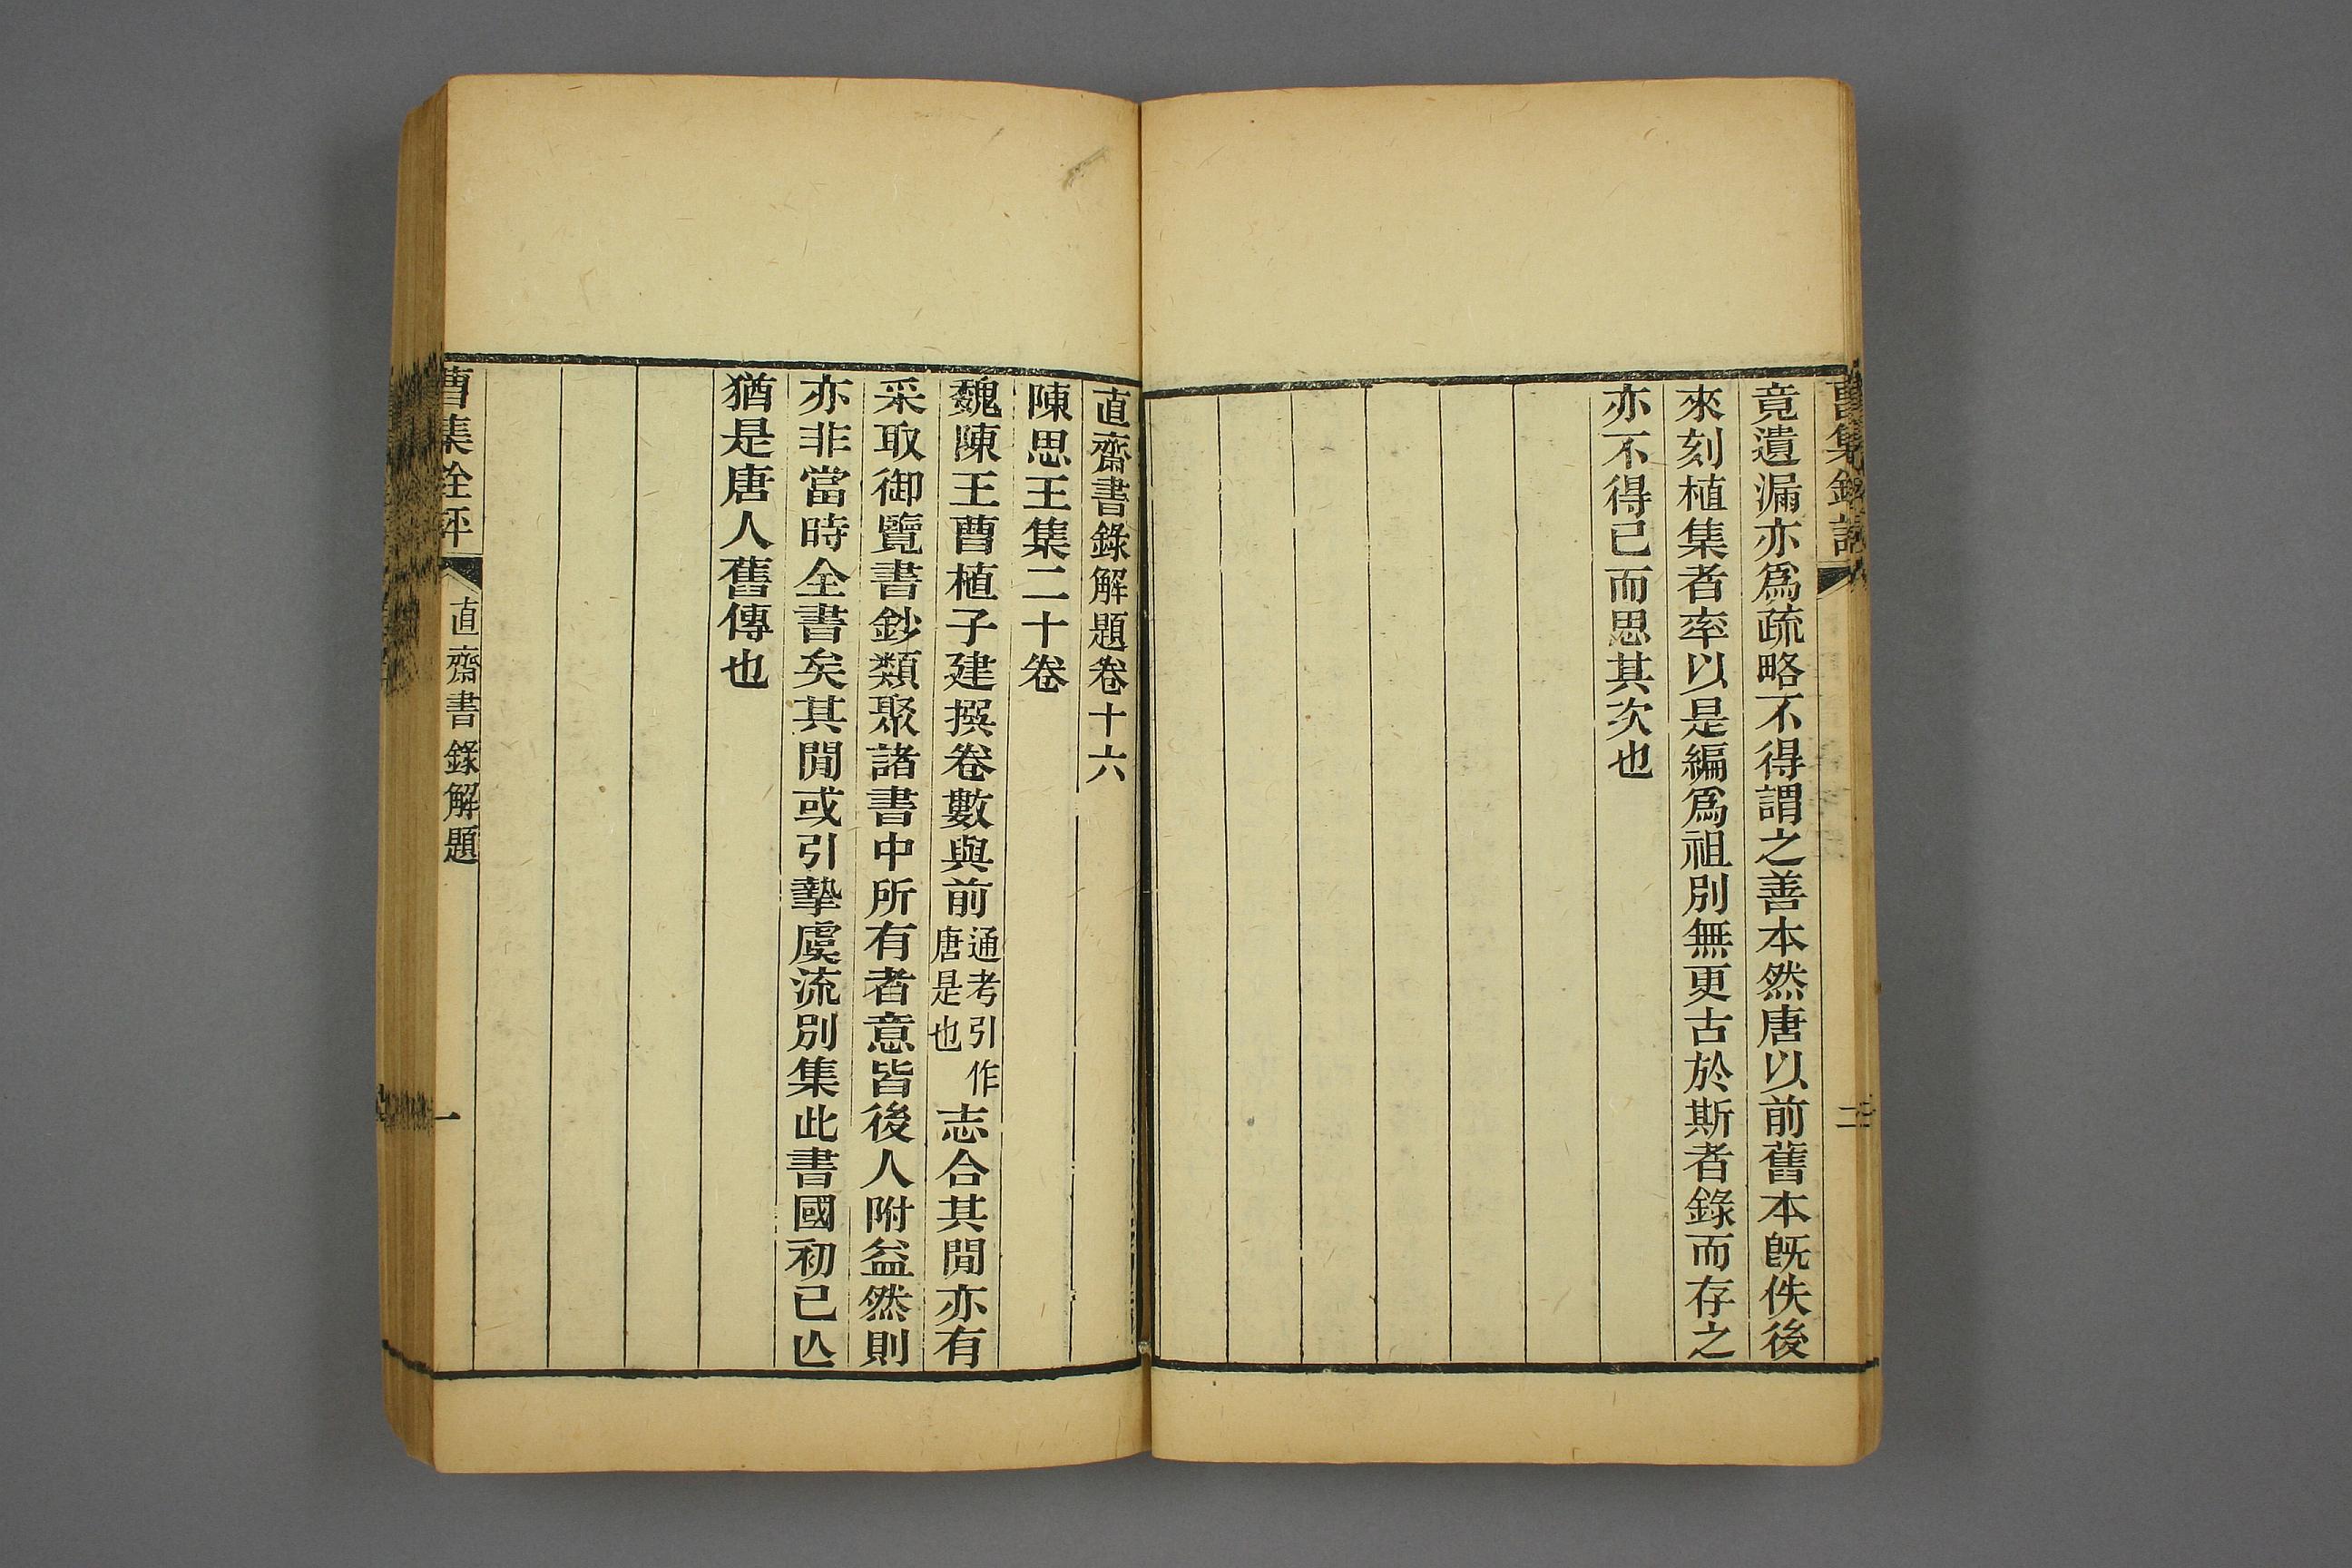 竟遺漏亦爲疏略不得謂之善本然唐以前舊本旣佚後
來刻植集者率以是編爲祖別無更古於斯者錄而存之
亦不得已而思其次也
二
直齋書錄解題卷十六
陳思王集二十卷
魏陳王曹植子建撰卷數與前通考引作唐是也志合其閒亦有
采取御覽書鈔類聚諸書中所有者意皆後人附益然則
亦非當時全書矣其閒或引摯虞流別集此書國初已亾
猶是唐人舊傳也
曹集銓評
直齋書錄解題
一